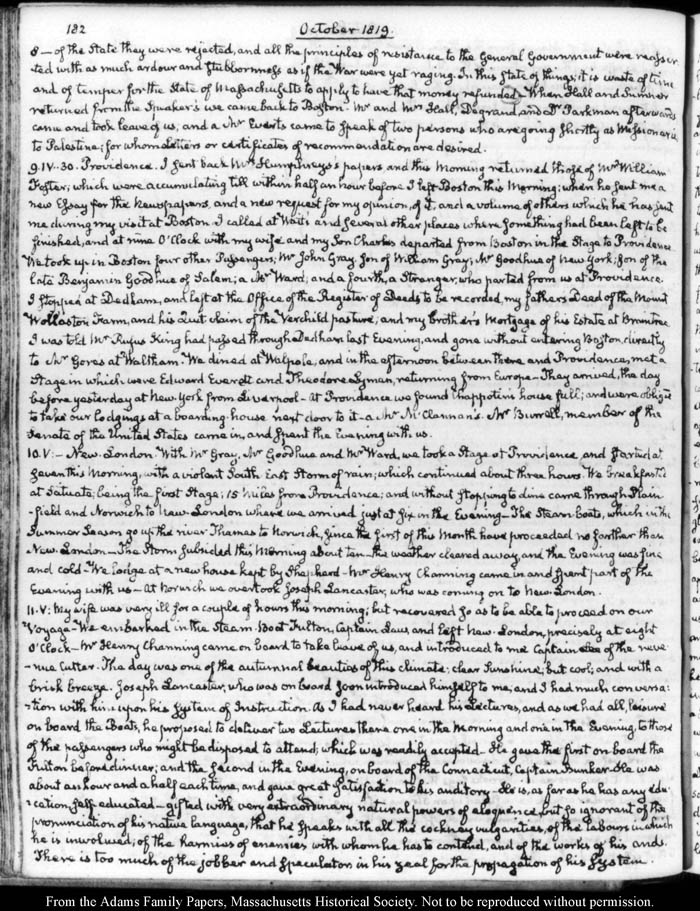 182
October 1819.
8 — of the State they were rejected, and all the principles of resistance to the General Government were reasser-
ted with as much ardour and stubbornness as if the War were yet raging. In this state of things, it is waste of time
and of temper for the State of Massachusetts to apply to have that money refunded. When Hall and Sumner
returned from the Speaker's we came back to Boston. Mr and Mrs Hall, Degrand, and Dr Parkman afterwards
came and took leave of us, and a Mr Evarts came to speak of two persons who are going shortly as Missionaries
to Palestine; for whom letters or certificates of recommendation are desired.
9. IV:30. Providence. I sent back Mr Humphreys's papers, and this Morning returned those of Mr William
Foster; which were accumulating till within half an hour before I left Boston this Morning; when he sent me a
new Essay for the Newspapers, and a new request for my opinion, of it, and a volume of others which he has sent
me during my visit at Boston. I called at Wait's and several other places where something had been left to be
finished, and at nine O'Clock with my wife and my Son Charles departed from Boston in the Stage to Providence
We took up in Boston four other Passengers; Mr John Gray, Son of William Gray; Mr Goodhue of New York; Son of the
late Benjamin Goodhue of Salem; a Mr Ward; and a fourth, a Stranger, who parted from us at Providence.
I stopped at Dedham, and left at the Office of the Register of Deeds to be recorded, my fathers Deed of the Mount
Wollaston Farm, and his Quit claim of the Verchild pasture, and my brother's Mortgage of his Estate at Braintree
I was told Mr Rufus King had passed through Dedham last Evening, and gone without entering Boston, directly
to Mr Gores at Waltham. We dined at Walpole, and in the afternoon between there and Providence, met a
Stage in which were Edward Everett and Theodore Lyman, returning from Europe — They arrived, the day
before yesterday at New York from Liverpool — At Providence we found house full; and were obliged
to take our lodgings at a boarding-house next door to it — a Mr M'Clannan's. Mr Burrell, member of the
Senate of the United States came in, and spent the Evening with us.
10. V: — New-London. With Mr Gray, Mr Goodhue and Mr Ward, we took a Stage at Providence, and started at
seven this Morning, with a violent South East Storm of rain; which continued about three hours. We breakfasted
at Scituate; being the first Stage; 15 Miles from Providence; and without stopping to dine came through Plain-
-field and Norwich to New-London where we arrived just at six in the Evening — The Steam Boats, which in the
Summer Season go up the river Thames to Norwich, since the first of this Month have proceeded no farther than
New-London — The Storm subsided this Morning about ten — the weather cleared away, and the Evening was fine
and cold — We lodge at a new house kept by Shephard — Mr Henry Channing came in and spent part of the
Evening with us — At Norwich we overtook Joseph Lancaster, who was coming on to New-London.
11. V: My wife was very ill for a couple of hours this morning; but recovered so as to be able to proceed on our
Voyage — We embarked in the Steam-Boat Fulton, Captain Law, and left New-London, precisely at eight
O'Clock — Mr Henry Channing came on board to take leave of us, and introduced to me Captain of the reve-
-nue Cutter. The day was one of the autumnal beauties of this climate: clear Sunshine, but cool; and with a
brisk breeze. Joseph Lancaster, who was on board soon introduced himself to me; and I had much conversa:
-tion with him upon his System of Instruction. As I had never heard his Lectures, and as we had all, leisure
on board the Boats, he proposed to deliver two Lectures there one in the Morning and one in the Evening, to those
of the passengers who might be disposed to attend; which was readily accepted. He gave the first on board the
Fulton before dinner; and the second in the Evening, on board of the Connecticut, Captain Bunker. He was
about an hour and a half each time, and gave great satisfaction to his auditory — He is, as far as he has any edu-
-cation, self educated — gifted with very extraordinary natural powers of eloquence, but so ignorant of the
pronunciation of his native language, that he speaks with all the cockney vulgarities, of the labours in which
he is involved; of the enemies with whom he has to contend, and of the works of his ands.
There is too much of the jobber and speculator in his zeal for the propagation of his System.
From the Adams Family Papers, Massachusetts Historical Society. Not to be reproduced without permission.